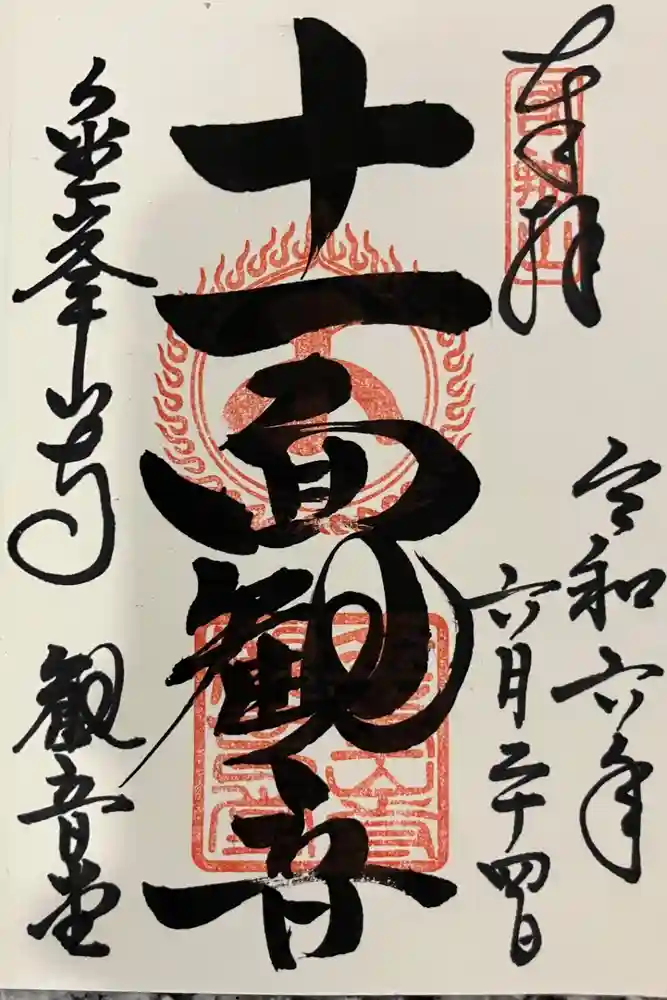 奉拝
令和六年
六月二十四日
十一面観音
金峯山寺 観音堂